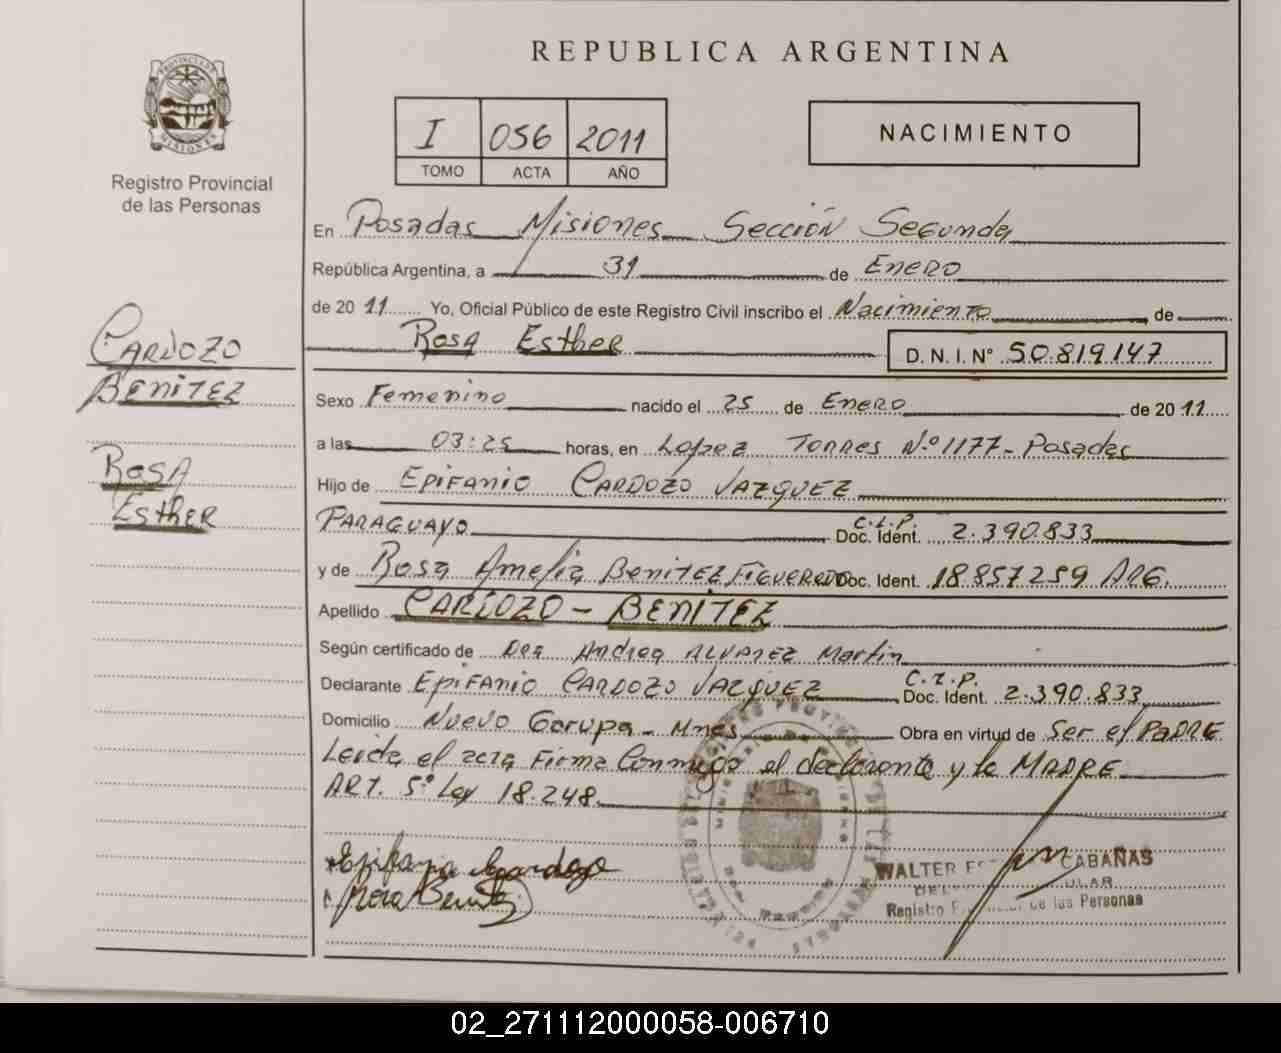 REPUBLICA ARGENTINA
PROVINCIA DE MISIONES
Registro Provincial
de las Personas
I 056 2011
TOMO ACTA AÑO
NACIMIENTO
En Posadas Misiones Sección Segunda
República Argentina, a 31 de Enero
de 2011 Yo, Oficial Público de este Registro Civil inscribo el Nacimiento de
Rosa Esther D.N.I.Nº 50.819.147
CARDOZO
BENITEZ
Rosa
Esther
Sexo Femenino nacido el 25 de Enero de 2011
a las 03:25 horas, en Lopez Torres N.º 1177 - Posadas
Hijo de Epifanio Cardozo Vazquez
Paraguayo C.I.P. Doc. Ident. 2.390.833
y de Rosa Amelia Benitez Figueredo Doc. Ident. 18.857259 ARG.
Apellido CARDOZO - BENÍTEZ
Según certificado de Dra Andrea Alvarez Martin
Declarante Epifanio Cardozo Vazquez C.I.P. Doc. Ident. 2.390.833
Domicilio Nuevo Garupa - Mnes Obra en virtud de Ser el PADRE
Leida el acta Firma Conmigo el declarante y la MADRE
ART. 5º Ley 18.248
Epifanio Cardozo
Rosa Benitez
WALTER CABAÑAS
Registro de las Personas
02_271112000058-006710